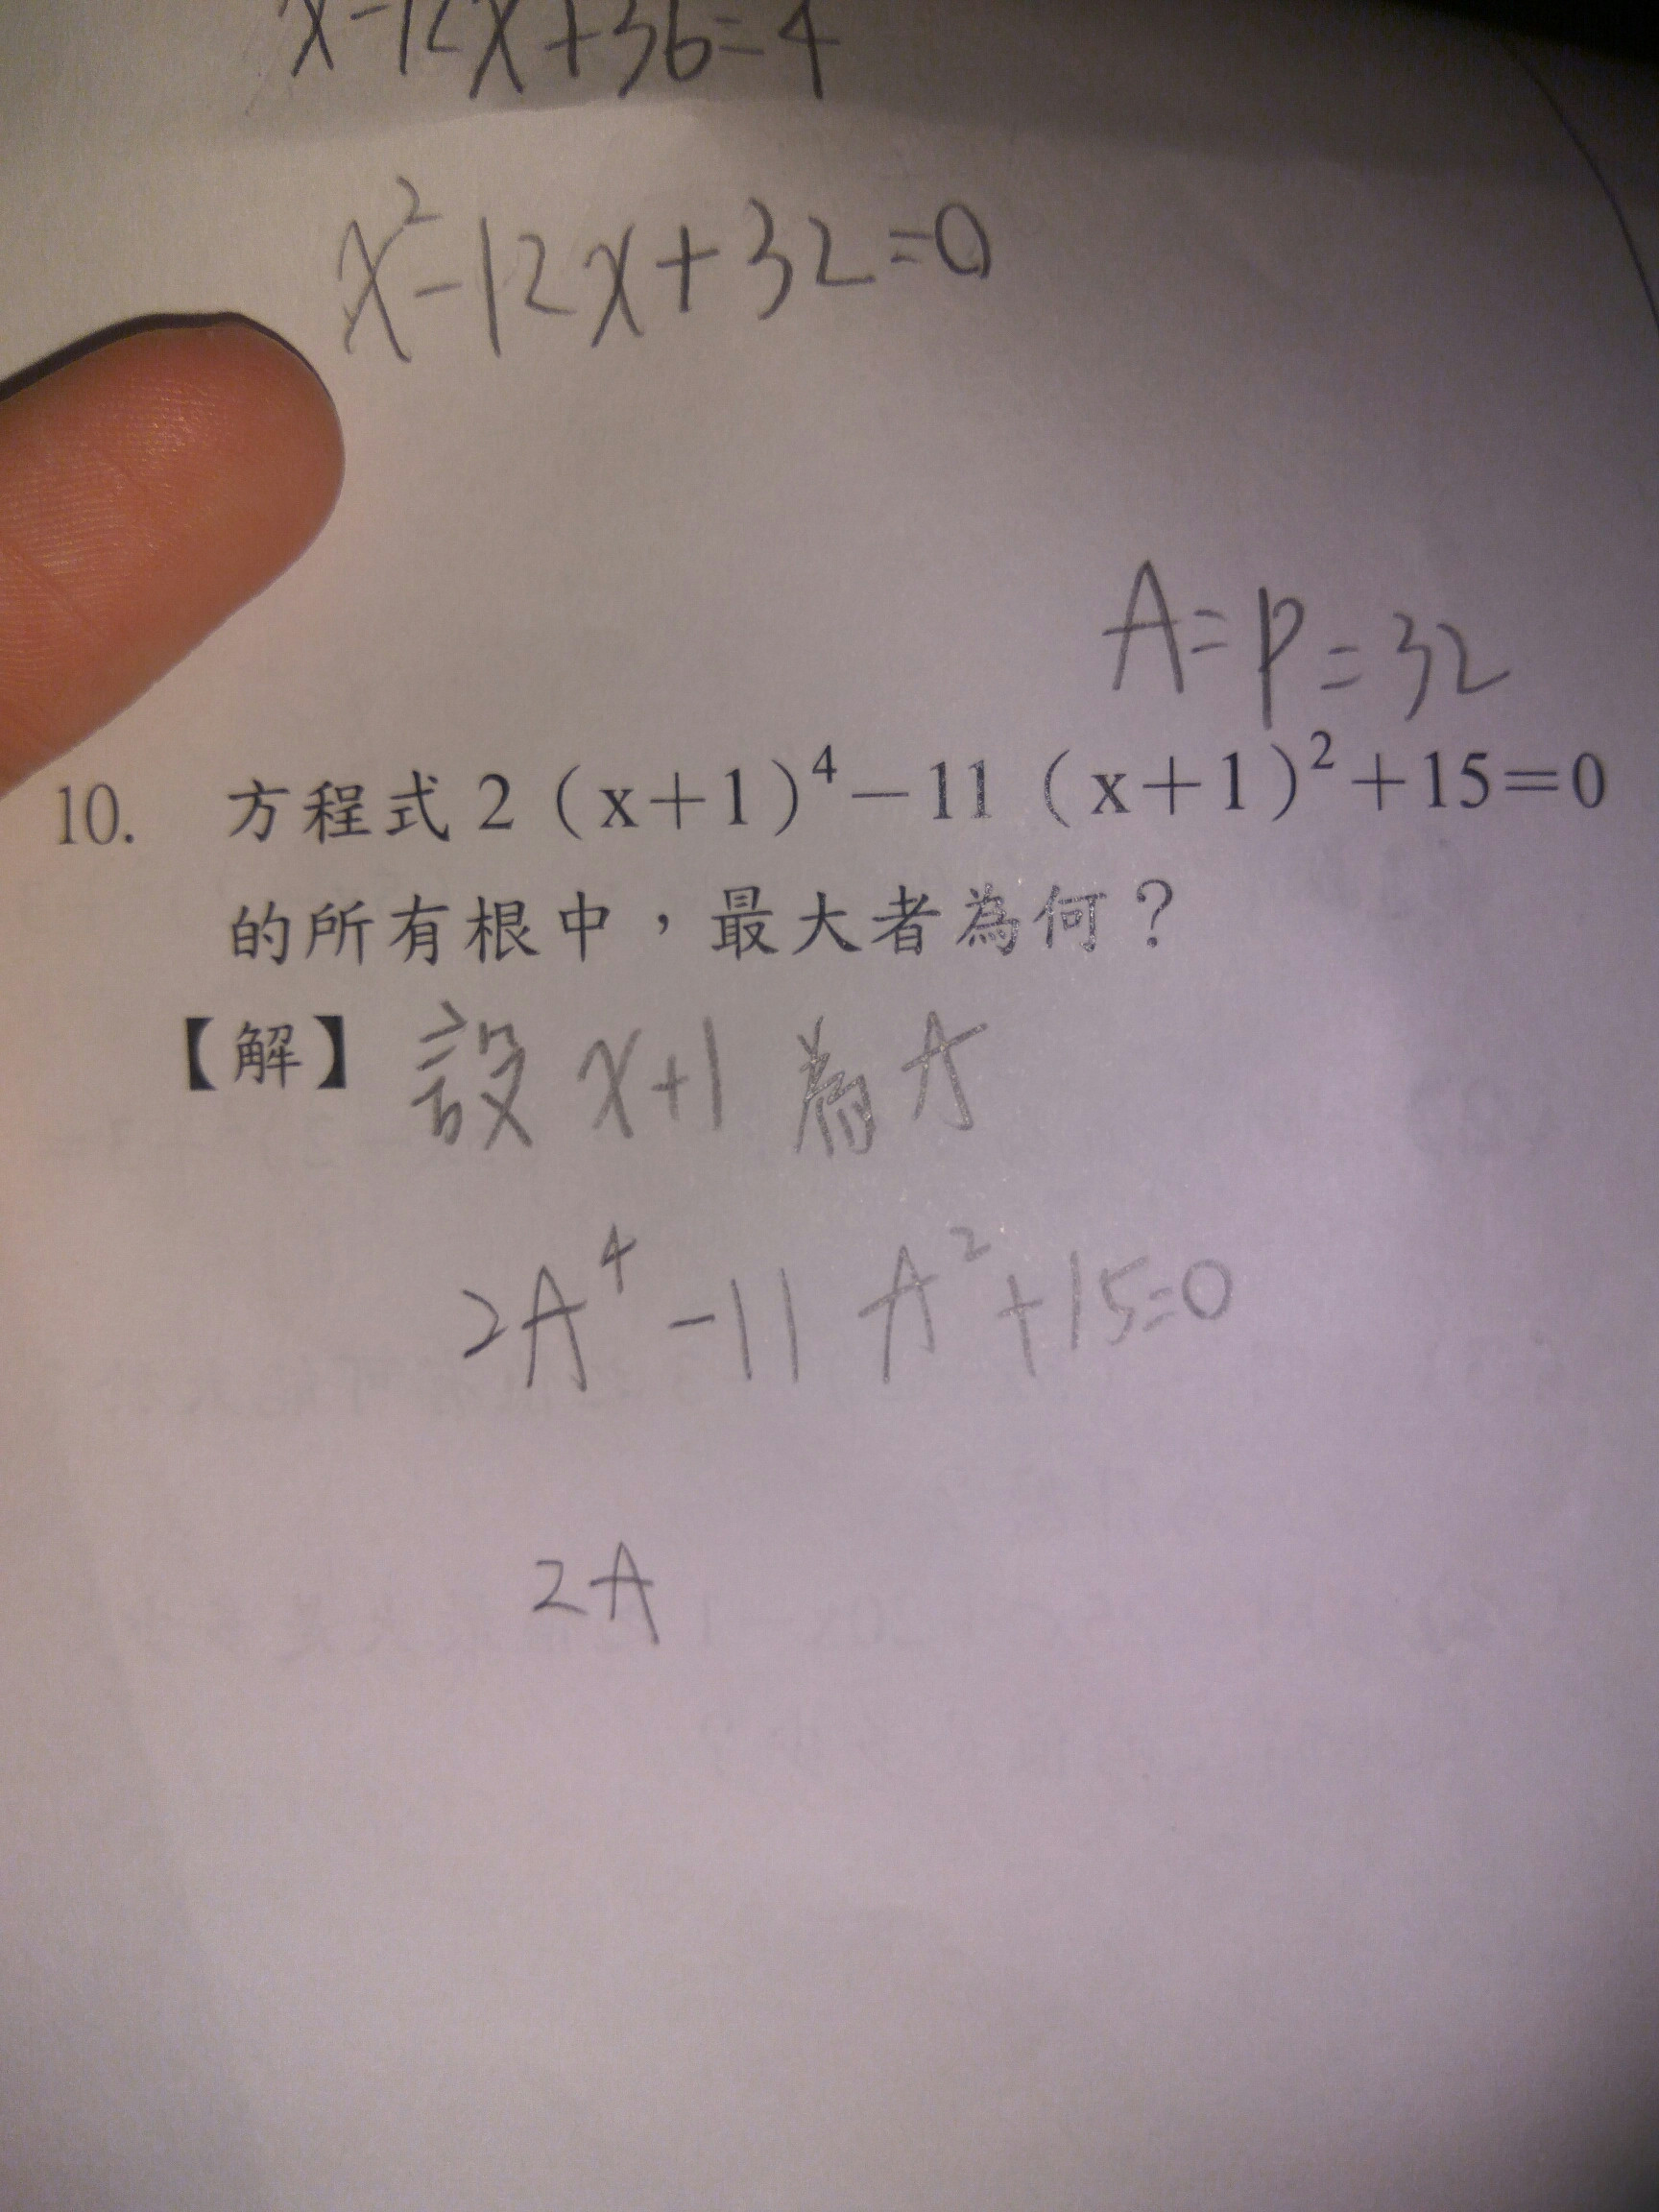 x-12x+36=4
x²-12x+32=0
A=P=32
10. 方程式 2（x+1）⁴－11（x+1）²+15=0
的所有根中，最大者為何？
【解】設 x+1 為 A
2A⁴-11A²+15=0
2A